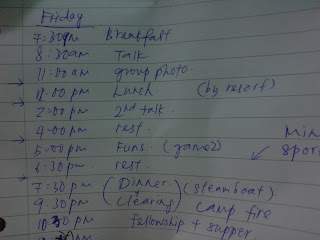 Friday
7:30pm Breakfast
8:30am Talk
11:00am group photo
12.00 pm Lunch. (by resort)
2:00 pm 2nd talk.
4:00 pm rest.
5:00 pm Funs. (games) Mini
6:30 pm. rest. spor
7:30 pm (Dinner) (Steamboat)
9:30 pm (Clearing) camp fire
10:30 pm fellowship + supper.